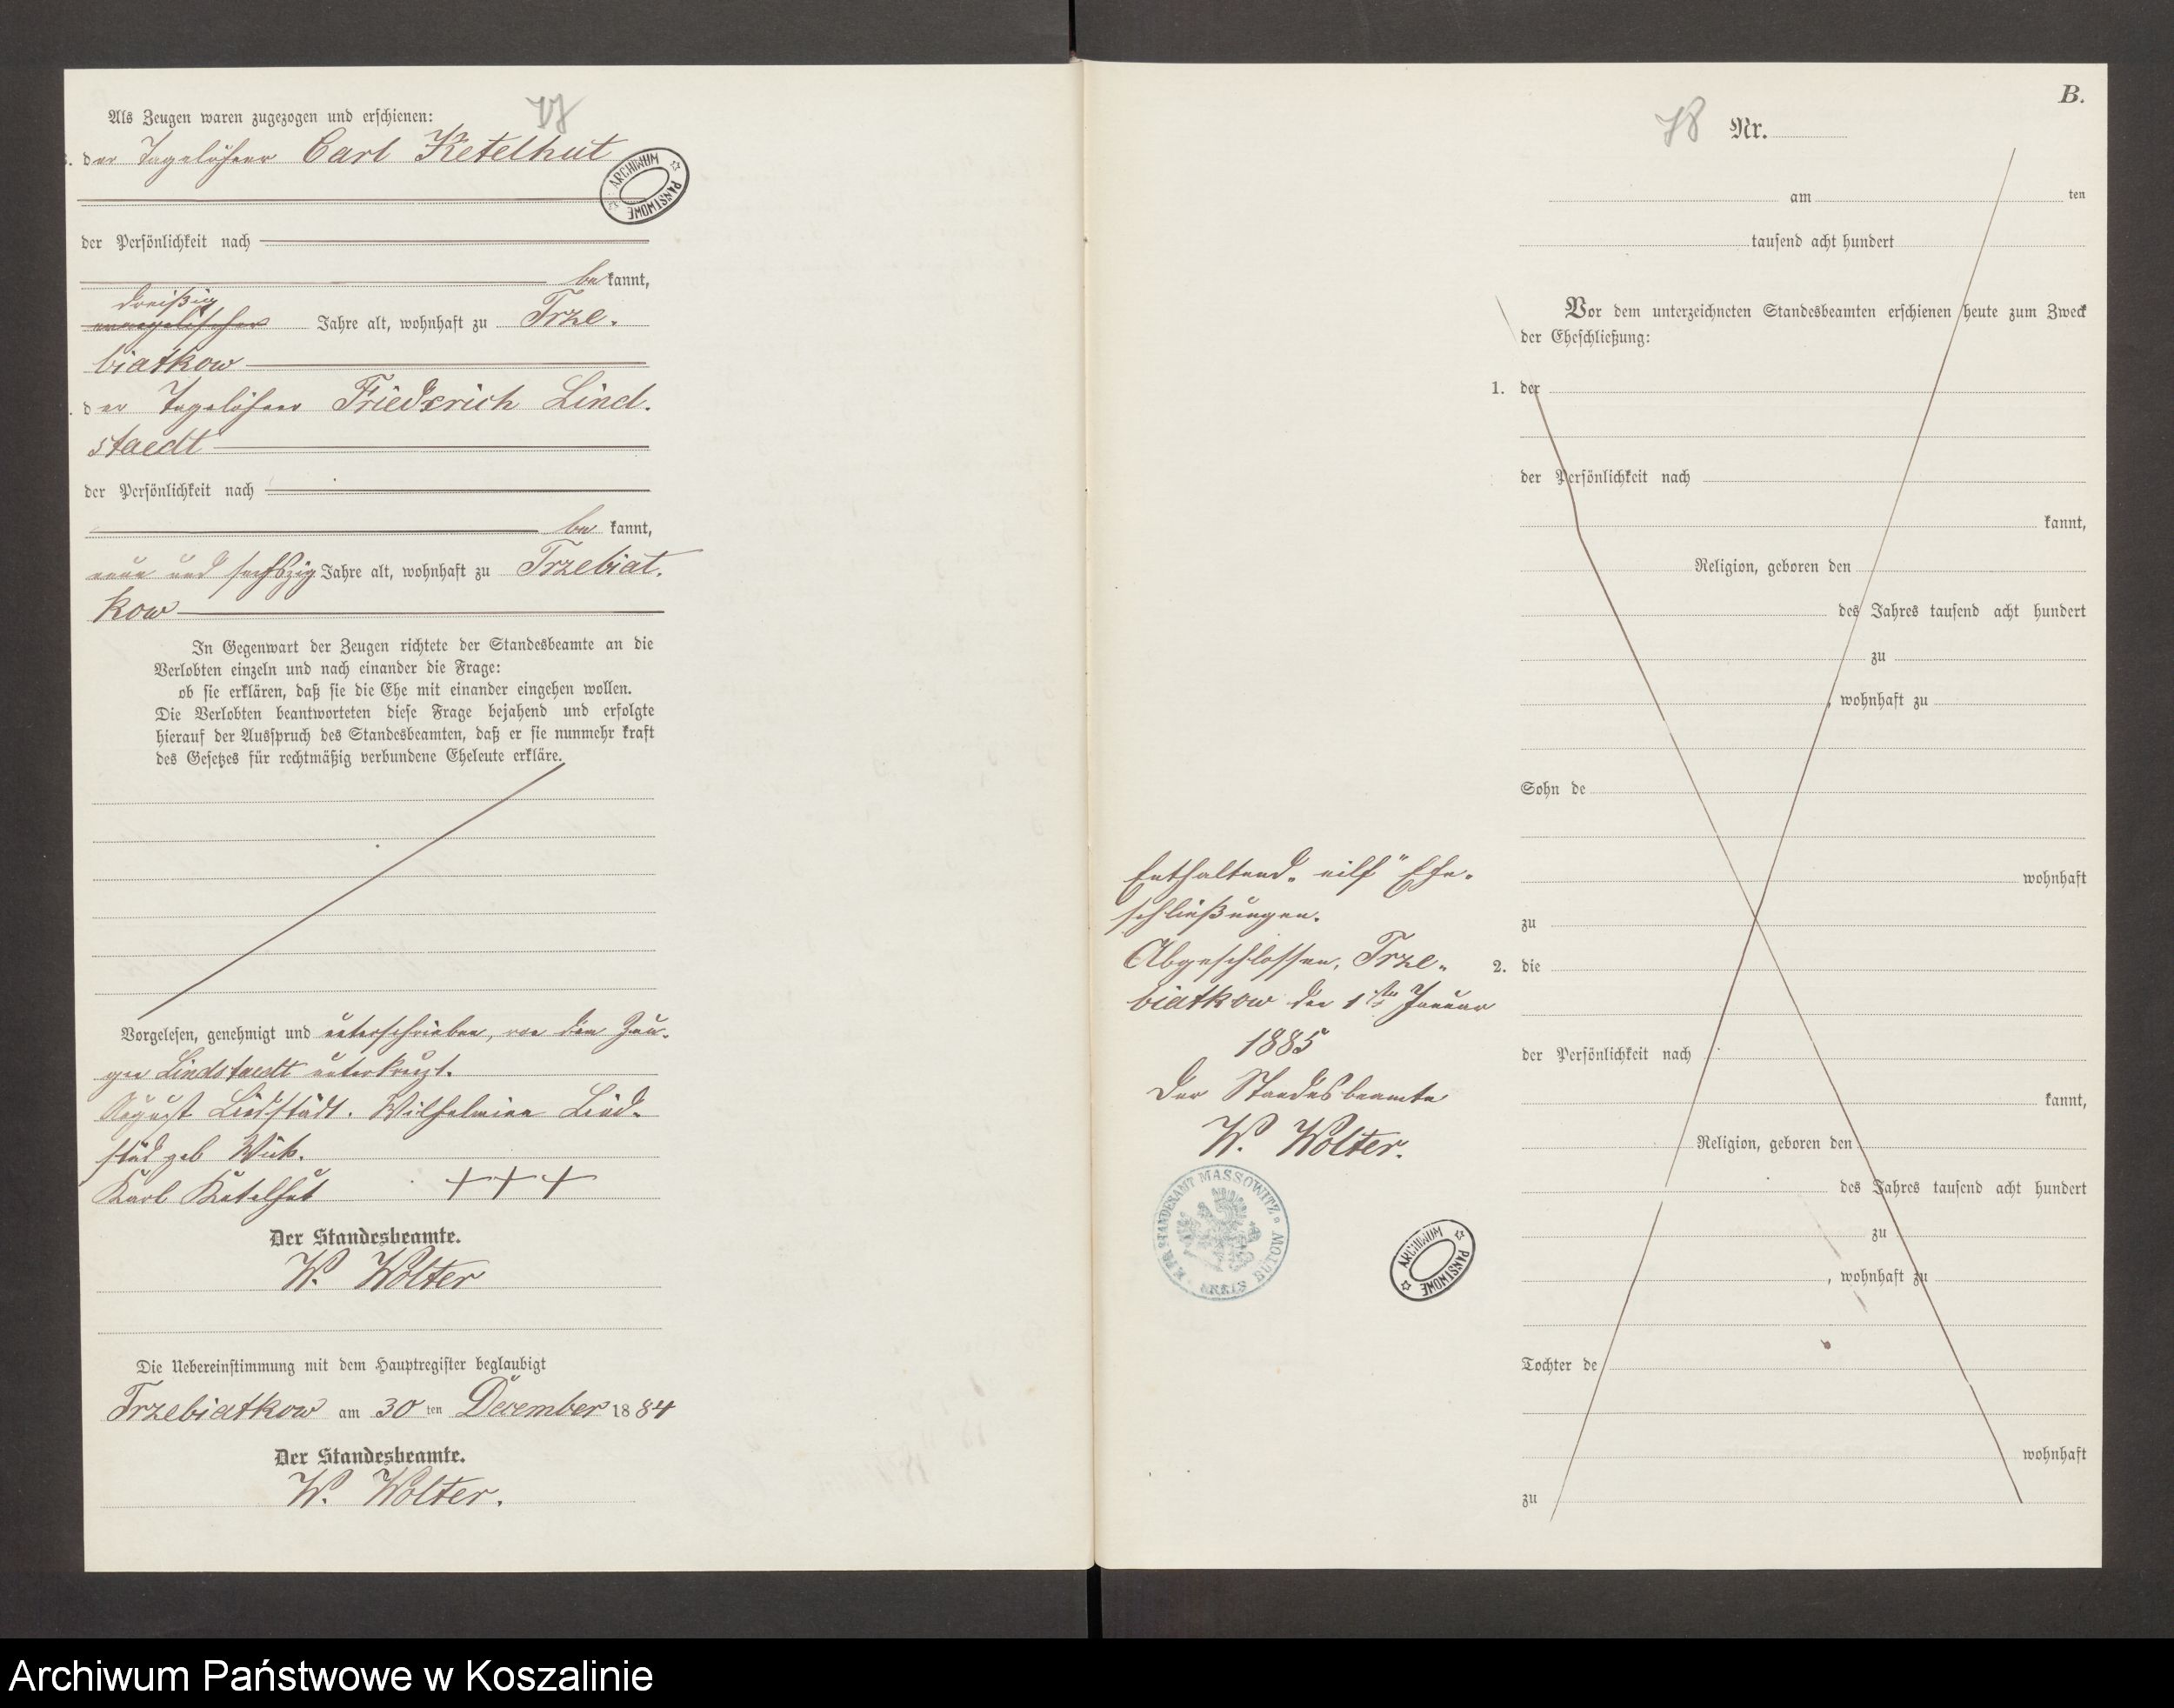 17
Als Zeugen waren zugezogen und erschienen:
3. der Tagelöhner Carl Ketelhut
ARCHIWUM PAŃSTWOWE
der Persönlichkeit nach
be kannt,
dreißig
evangelischer Jahre alt, wohnhaft zu Trze-
biatkow
. der Tagelöhner Friedrich Lind-
staedt
der Persönlichkeit nach
be kannt,
neun und sechszig Jahre alt, wohnhaft zu Trzebiat-
kow
In Gegenwart der Zeugen richtete der Standesbeamte an die
Verlobten einzeln und nach einander die Frage:
ob sie erklären, daß sie die Ehe mit einander eingehen wollen.
Die Verlobten beantworteten diese Frage bejahend und erfolgte
hierauf der Ausspruch des Standesbeamten, daß er sie nunmehr kraft
des Gesetzes für rechtmäßig verbundene Eheleute erkläre.
Vorgelesen, genehmigt und unterschrieben, von dem Zeu-
gen Lindstaedt unterkreuzt.
August Lindstädt. Wilhelmine Lind-
städ geb
Karl Ketelhut +++
Der Standesbeamte.
W. Wolter
Die Uebereinstimmung mit dem Hauptregister beglaubigt
Trzebiatkow am 30 ten December 1884
Der Standesbeamte.
W. Wolter.
B.
78 Nr.
am ten
tausend acht hundert
Vor dem unterzeichneten Standesbeamten erschienen heute zum Zweck
der Eheschließung:
1. der
der Persönlichkeit nach
kannt,
Religion, geboren den
des Jahres tausend acht hundert
zu
, wohnhaft zu
Sohn de
wohnhaft
zu
2. die
der Persönlichkeit nach
kannt,
Religion, geboren den
des Jahres tausend acht hundert
zu
, wohnhaft zu
Tochter de
wohnhaft
zu
Enthaltend "eilf" Ehe-
schließungen.
Abgeschlossen, Trze-
biatkow den 1ten Januar
1885
Der Standesbeamte
W. Wolter.
K. PR. STANDESAMT MASSOWITZ KREIS BÜTOW
ARCHIWUM PAŃSTWOWE
Archiwum Państwowe w Koszalinie